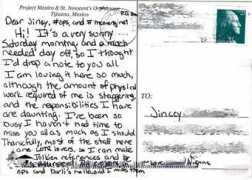 Project Mexico & St. Innocent's Orphanage
Tijuana, Mexico
Dear Jincy, #ops, and # theiningnet
Hi! It's a very sunny
Saturday morning and a much
needed day off, so I thought
I'd drop a note to you all.
I am loving it here so much,
although the amount of physical
work required of me is staggering,
and the responsibilities I have
are daunting. I've been so
busy I haven't had time to
miss you all as much as I should
Thankfully, most of the staff here
are lines, so I can make
references and be
ops and Darli's nailed and I miss them
TO:
Jincey